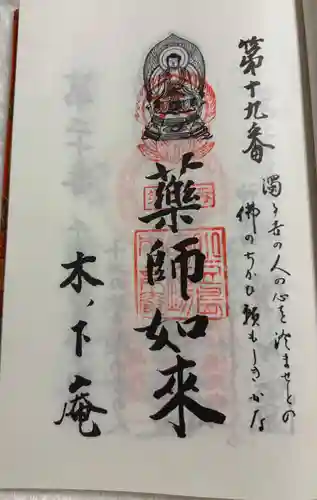 第十九番
濁り世の人の心を澄ませとの
佛のちかひ頼もしきかな
藥師如來
木ノ下庵